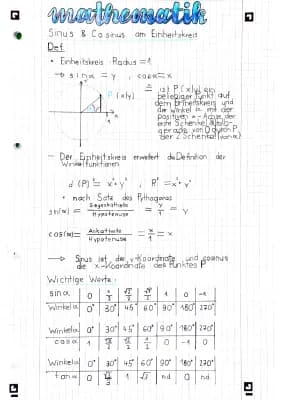 mathematik
Sinus & Cosinus am Einheitskreis
Def.
• Einheitskreis: Radius = 1
→ sin α = y , cos α = x
P (x|y)
ist P(x|y) ein
beliebiger Punkt auf
dem Einheitskreis und
der Winkel α mit der
positiven x-Achse der
erste Schenkel &
gerade von 0 durch P
der 2. Schenkel (von α)
– Der Einheitskreis erweitert die Definition der
Winkelfunktionen
d (P)² = x² + y² , R² = x² + y²
• nach Satz des Pythagoras
sin(α) = Gegenkathete / Hypotenuse = y/1 = y
cos(α) = Ankathete / Hypotenuse = x/1 = x
→ Sinus ist die y-Koordinate und cosinus
die x-Koordinate des Punktes P
Wichtige Werte:
sin α 0 1/2 √2/2 √3/2 1 0 -1
Winkel α 0° 30° 45° 60° 90° 180° 270°
Winkel α 0° 30° 45° 60° 90° 180° 270°
cos α 1 √3/2 √2/2 1/2 0 -1 0
Winkel α 0° 30° 45° 60° 90° 180° 270°
tan α 0 √3/3 1 √3 nd. 0 nd.